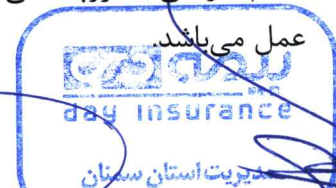 عمل می‌باشد.
بیمه دی
day insurance
مدیریت استان سمنان